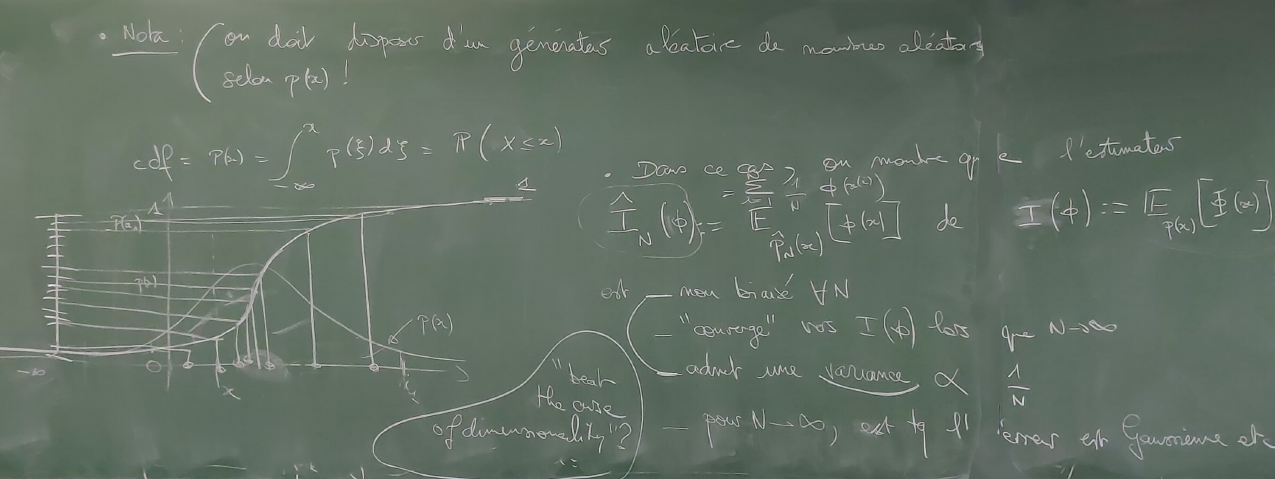 • Nota : ( on doit disposer d'un générateur aléatoire de nombres aléatoires
selon p(x) !
cdf = P(x) = ∫_{-∞}^{x} p(ξ)dξ = ℙ( X ≤ x )
1
1
p(x)
-∞
O
x
• Dans ce cas, on montre que l'estimateur
= Σ_{i=1}^{N} 1/N ϕ(x^{(i)})
Î_N(ϕ) := 𝔼_{p̂_N(x)} [ϕ(x)] de I(ϕ) := 𝔼_{p(x)} [Φ(x)]
est — non biaisé ∀N
— "converge" vers I(ϕ) lors que N→∞
— admet une variance ∝ 1/N
— pour N→∞, est tq l'erreur est Gaussienne etc
"beat
the curse
of dimensionality"?